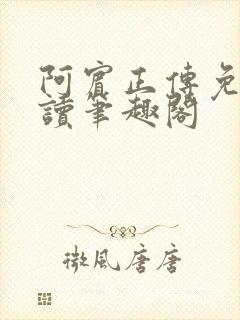 阿賓正傳免
讀筆趣閣
微風唐唐